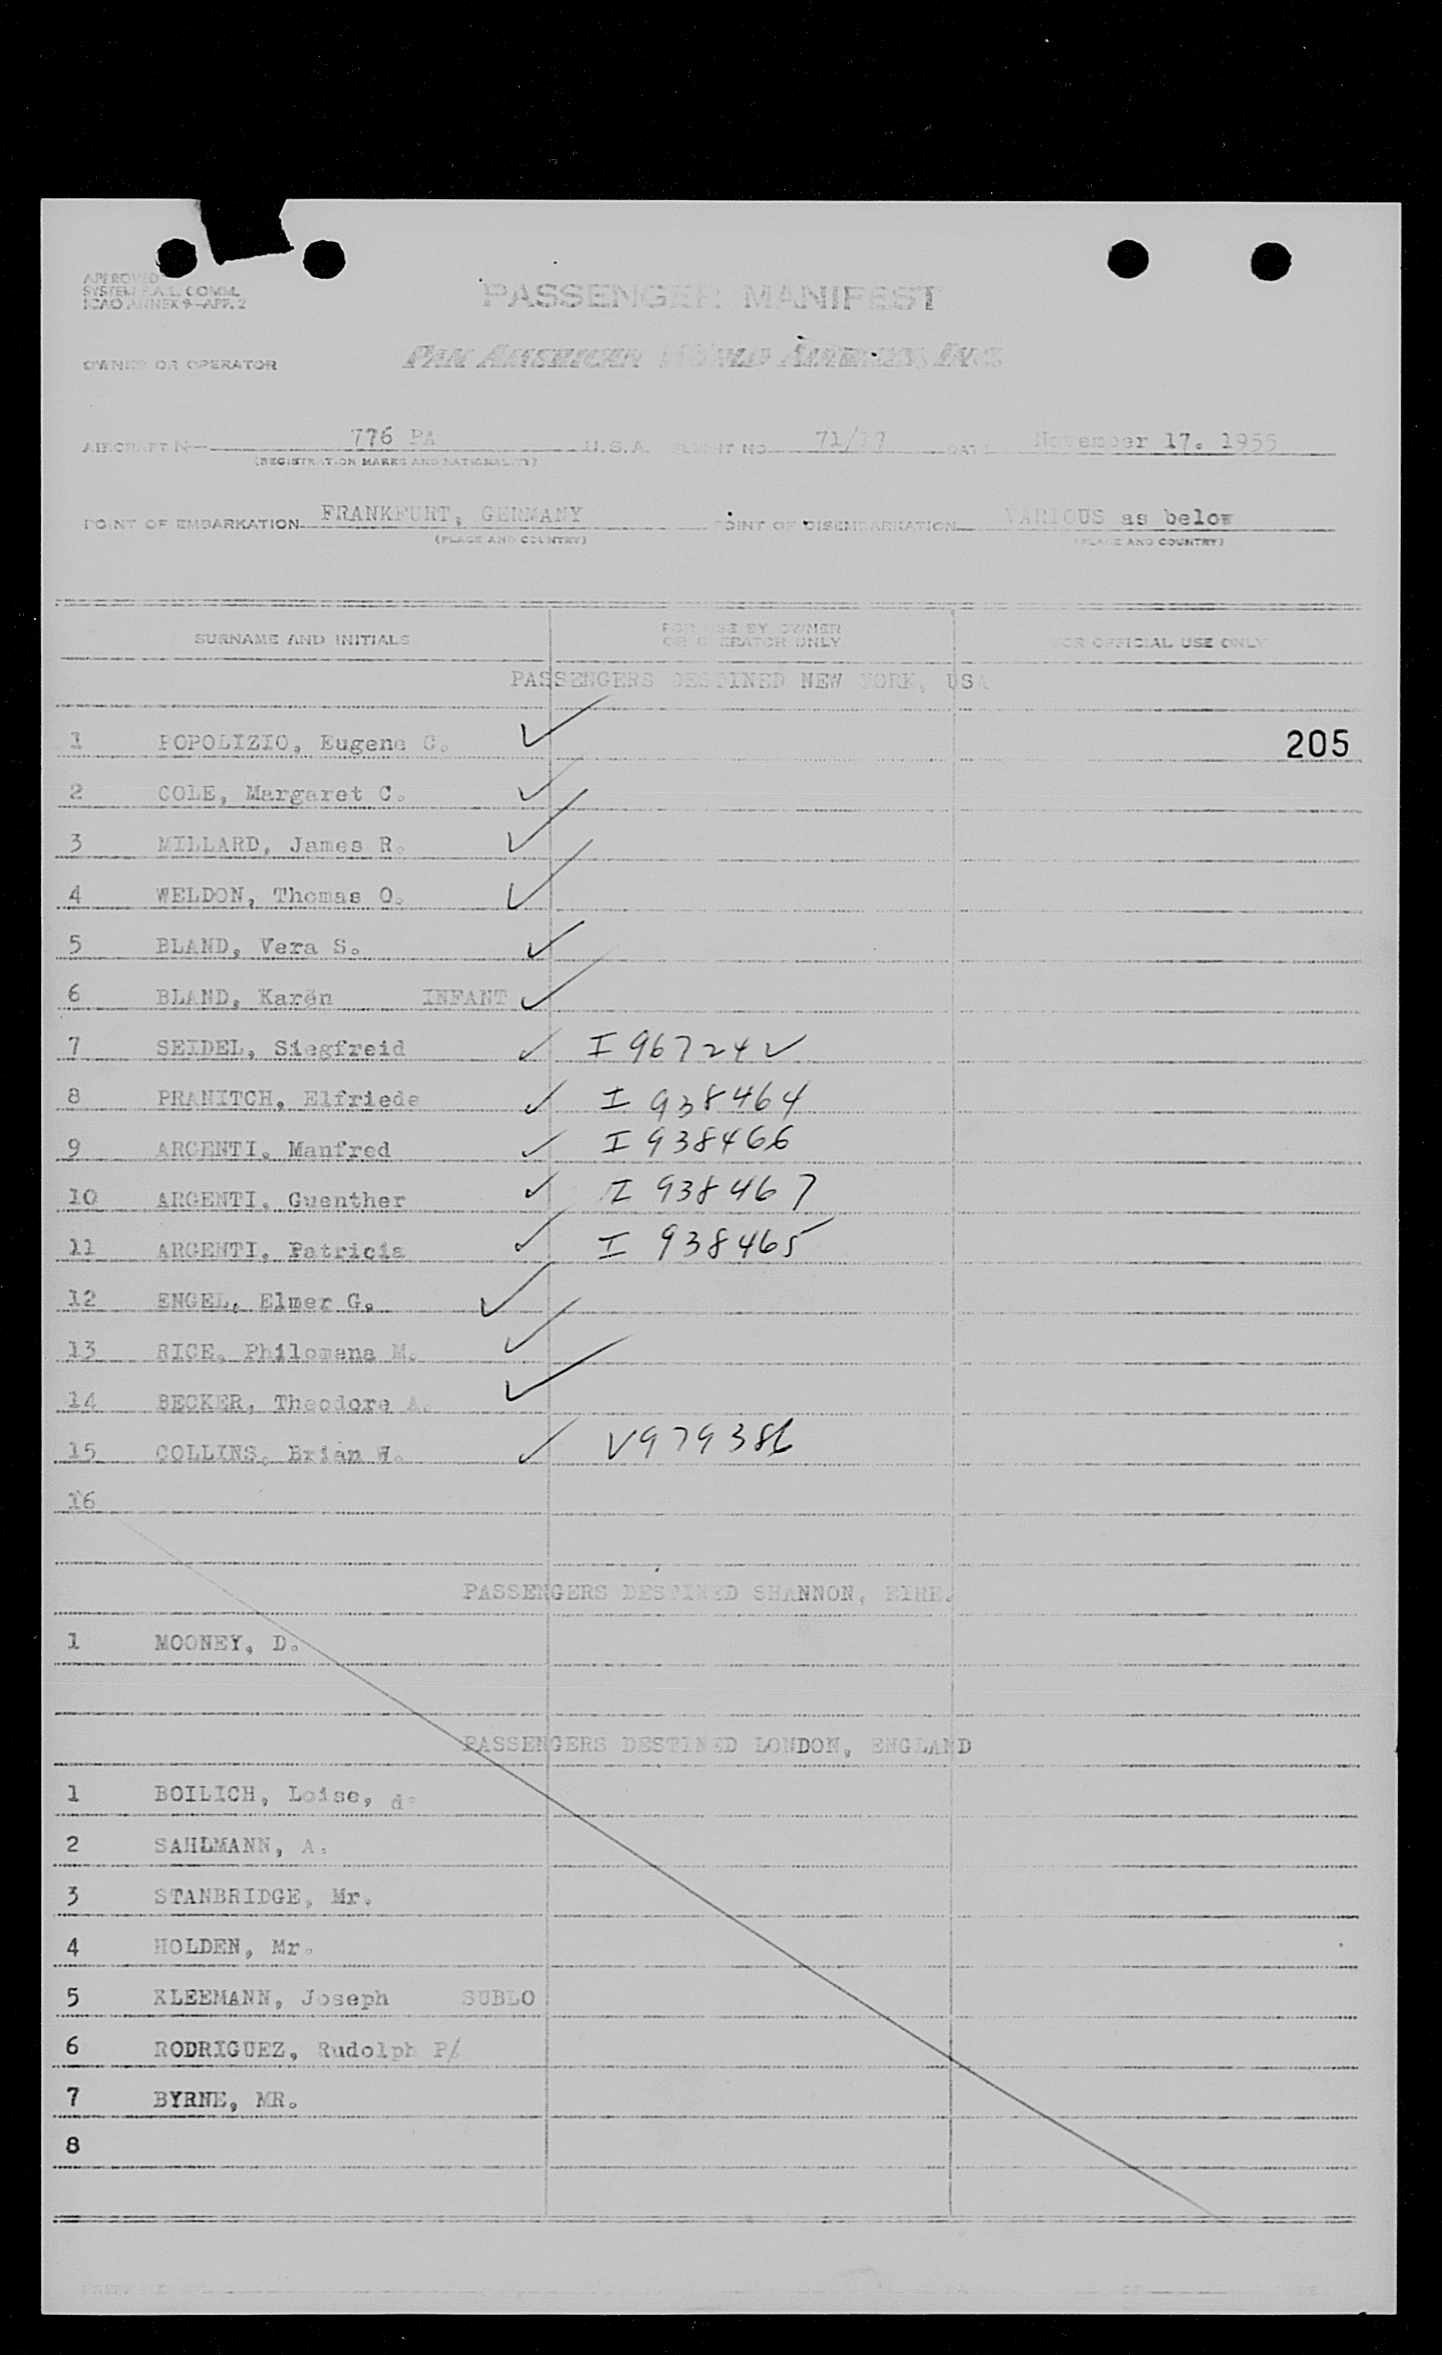 APPROVED
SYSTEM F.A.L. COMM.
ICAO ANNEX 9-APP. 2
PASSENGER MANIFEST
OWNER OR OPERATOR PAN AMERICAN WORLD AIRWAYS INC
AIRCRAFT N- 776 PA U.S.A. FLIGHT NO. 71/17 DATE November 17. 1955
(REGISTRATION MARKS AND NATIONALITY)
POINT OF EMBARKATION FRANKFURT, GERMANY POINT OF DISEMBARKATION VARIOUS as below
(PLACE AND COUNTRY) (PLACE AND COUNTRY)
SURNAME AND INITIALS FOR USE BY OWNER OR OPERATOR ONLY FOR OFFICIAL USE ONLY
PASSENGERS DESTINED NEW YORK, USA
1 POPOLIZIO, Eugene C. ✓ 205
2 COLE, Margaret C. ✓
3 MILLARD, James R. ✓
4 WELDON, Thomas O. ✓
5 BLAND, Vera S. ✓
6 BLAND, Karen INFANT ✓
7 SEIDEL, Siegfreid ✓ I 96724 ✓
8 PRANITCH, Elfriede ✓ I 938464
9 ARGENTI, Manfred ✓ I 938466
10 ARGENTI, Guenther ✓ I 938467
11 ARGENTI, Patricia ✓ I 938465
12 ENGEL, Elmer G. ✓
13 RICE, Philomena M. ✓
14 BECKER, Theodore A. ✓
15 COLLINS, Brian W. ✓ V979386
16
PASSENGERS DESTINED SHANNON, EIRE.
1 MOONEY, D.
PASSENGERS DESTINED LONDON, ENGLAND
1 BOILICH, Loise, d.
2 SAHLMANN, A.
3 STANBRIDGE, Mr.
4 HOLDEN, Mr.
5 KLEEMANN, Joseph SUBLO
6 RODRIGUEZ, Rudolph P/
7 BYRNE, MR.
8